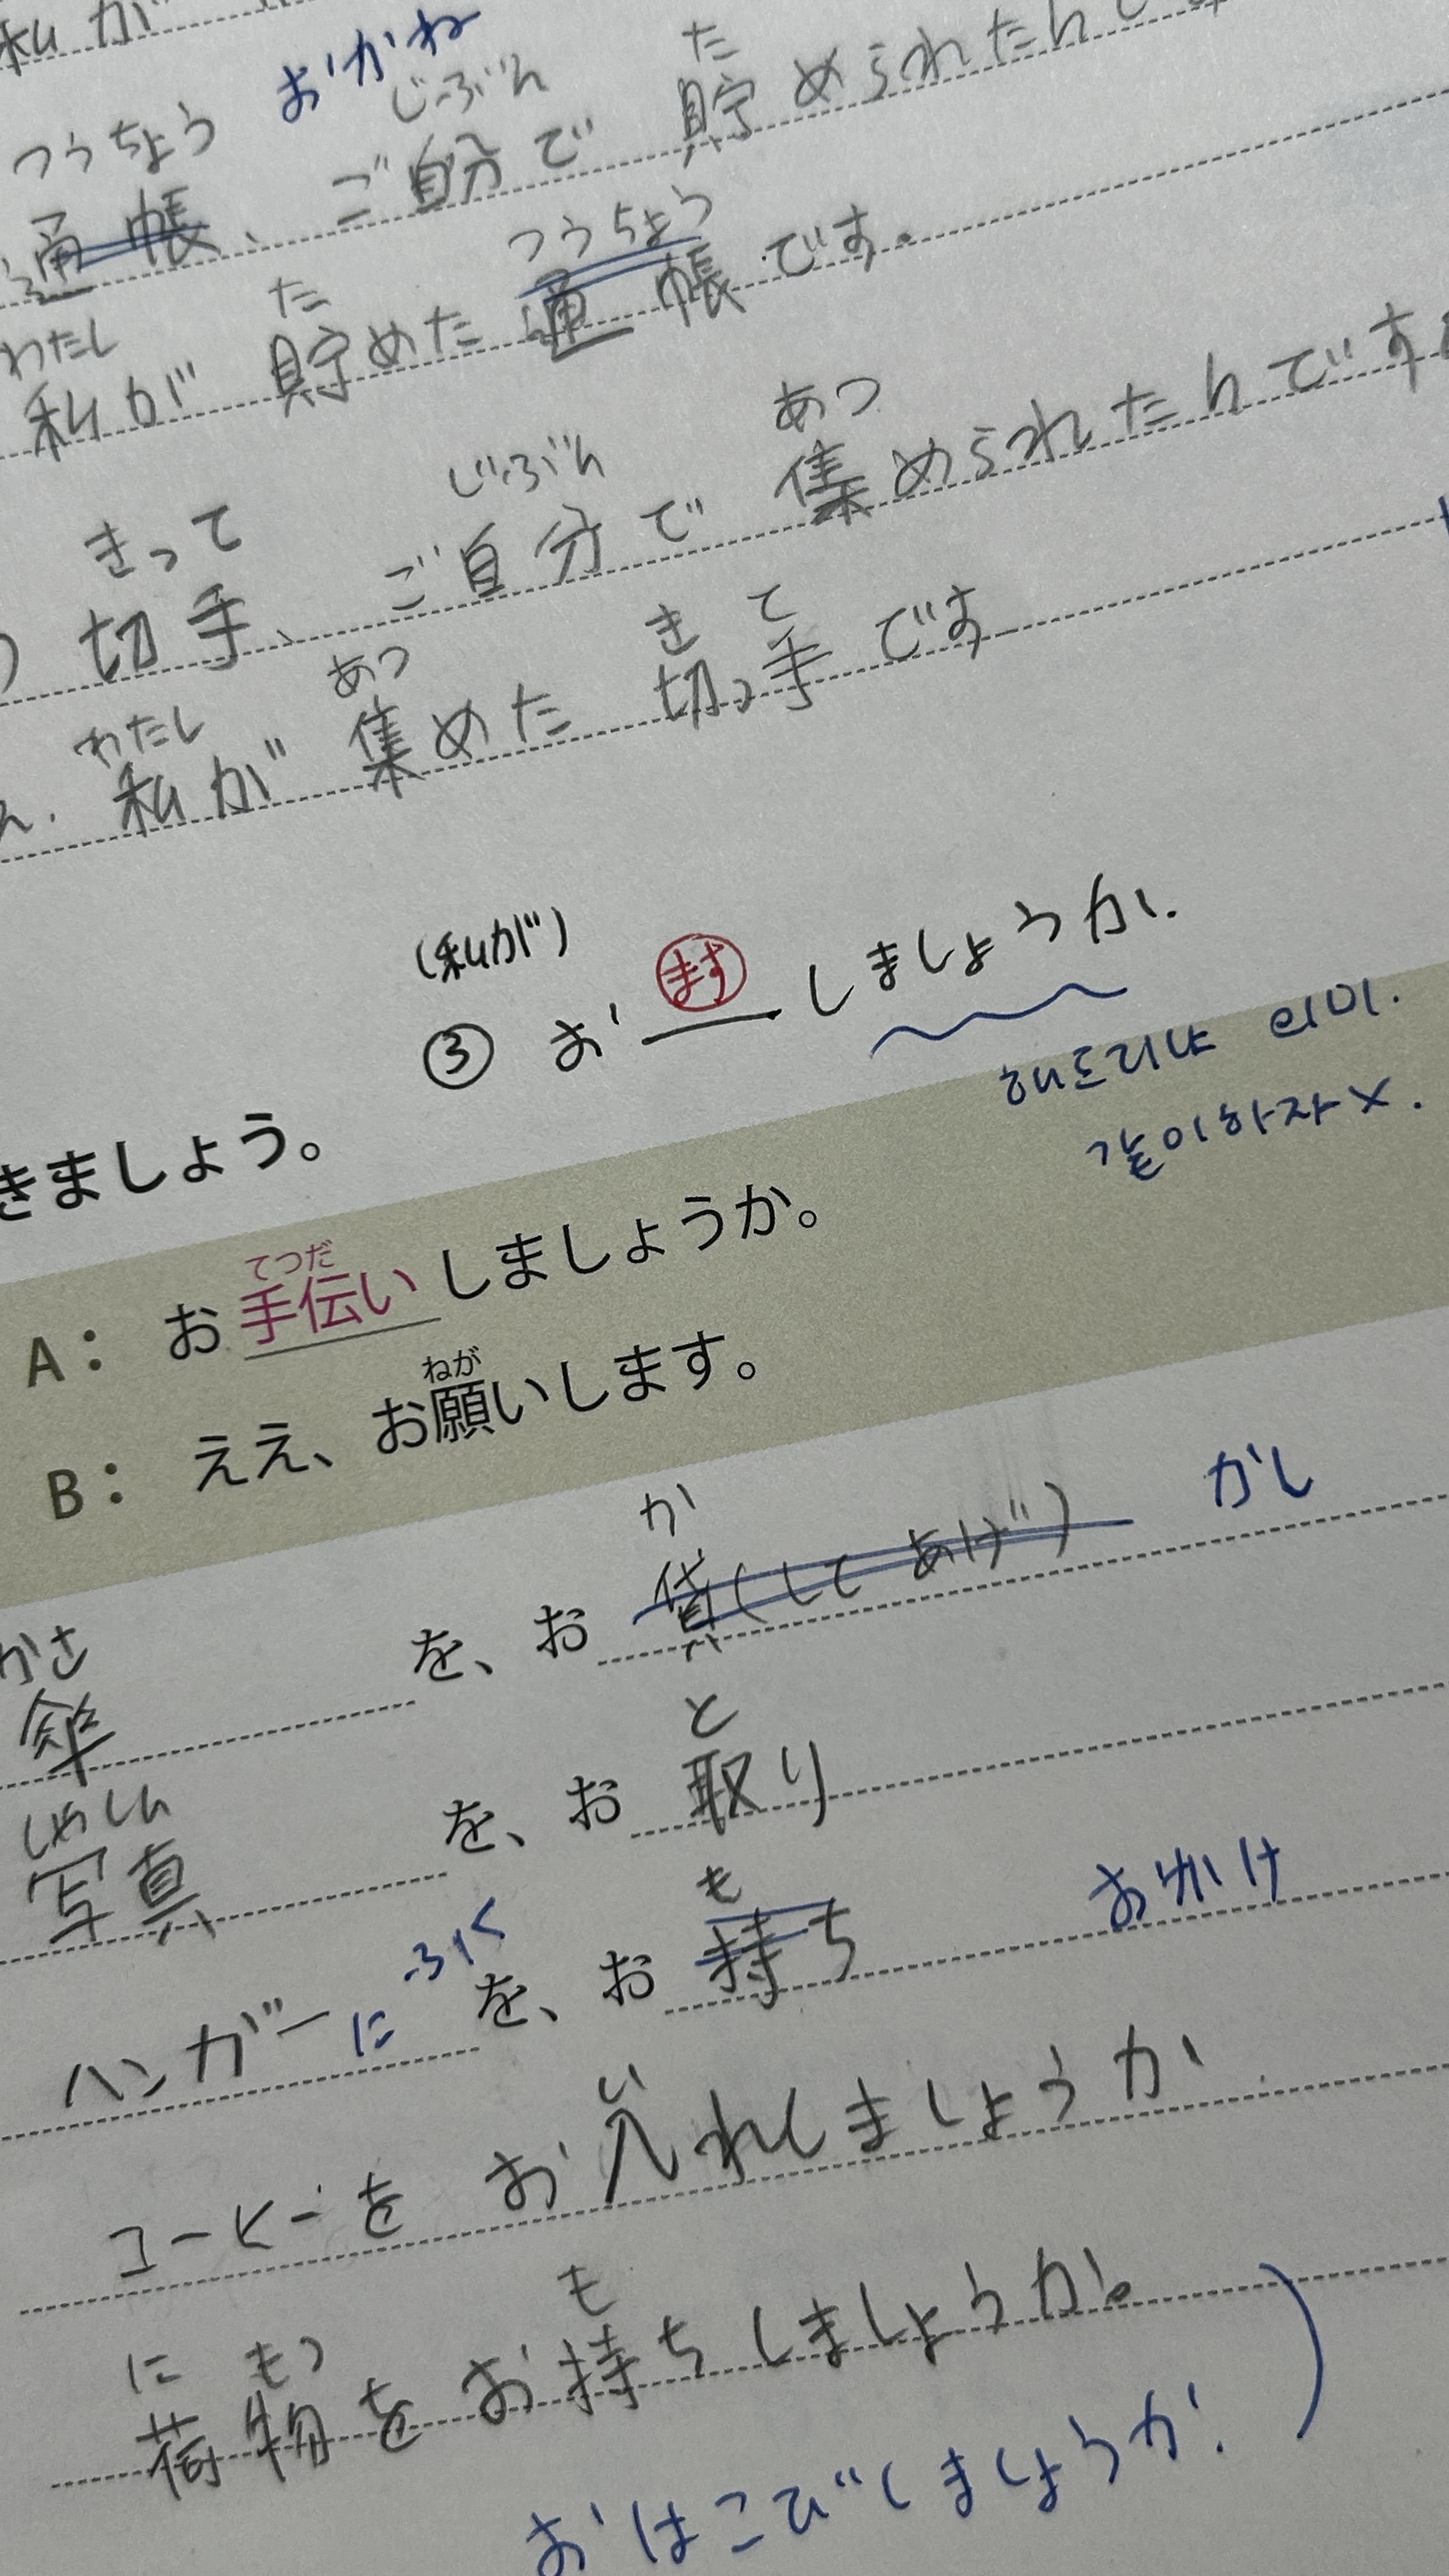 私が
おかね
つうちょう じぶん た
通帳、ご自分で 貯められたんで
わたし た つうちょう
私が 貯めた 通帳です。
きって じぶん あつ
切手、ご自分で 集められたんです
わたし あつ き て
私が 集めた 切っ手です
(私が)
③ お ます しましょうか.
해드리냐 의미.
같이하자 X.
きましょう。
てつだ
A: お手伝いしましょうか。
ねが
B: ええ、お願いします。
かさ か かし
傘 を、お 貸(してあげ)
しゃしん と
写真 を、お 取り
ふく も おかけ
ハンガーに を、お 持ち
い
コーヒーを お入れしましょうか
にもつ も
荷物を お持ちしましょうか。
おはこびしましょうか.